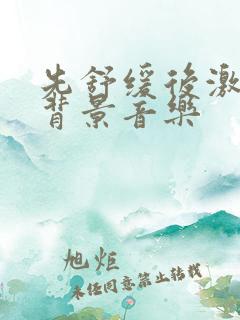 先舒缓后激
背景音乐
旭炬
未经同意禁止转载